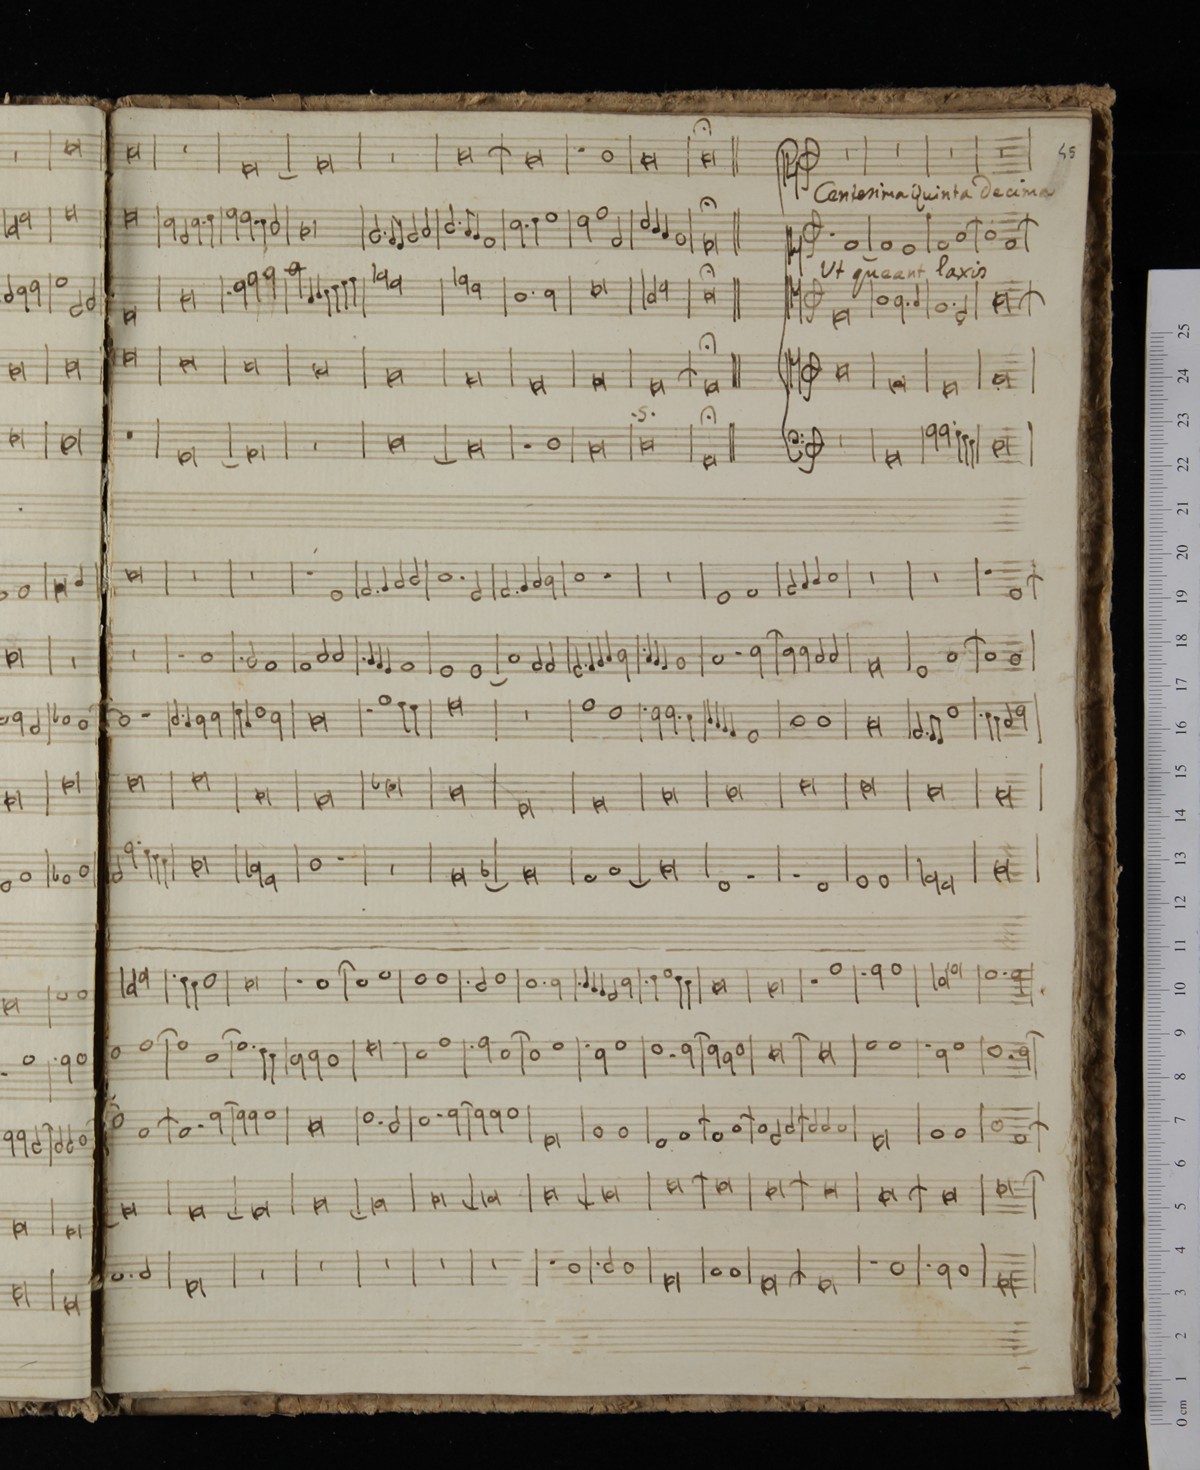 45
Centesima quinta decima
Ut queant laxis
.5.
25
24
23
22
21
20
19
18
17
16
15
14
13
12
11
10
9
8
7
6
5
4
3
2
1
0 cm